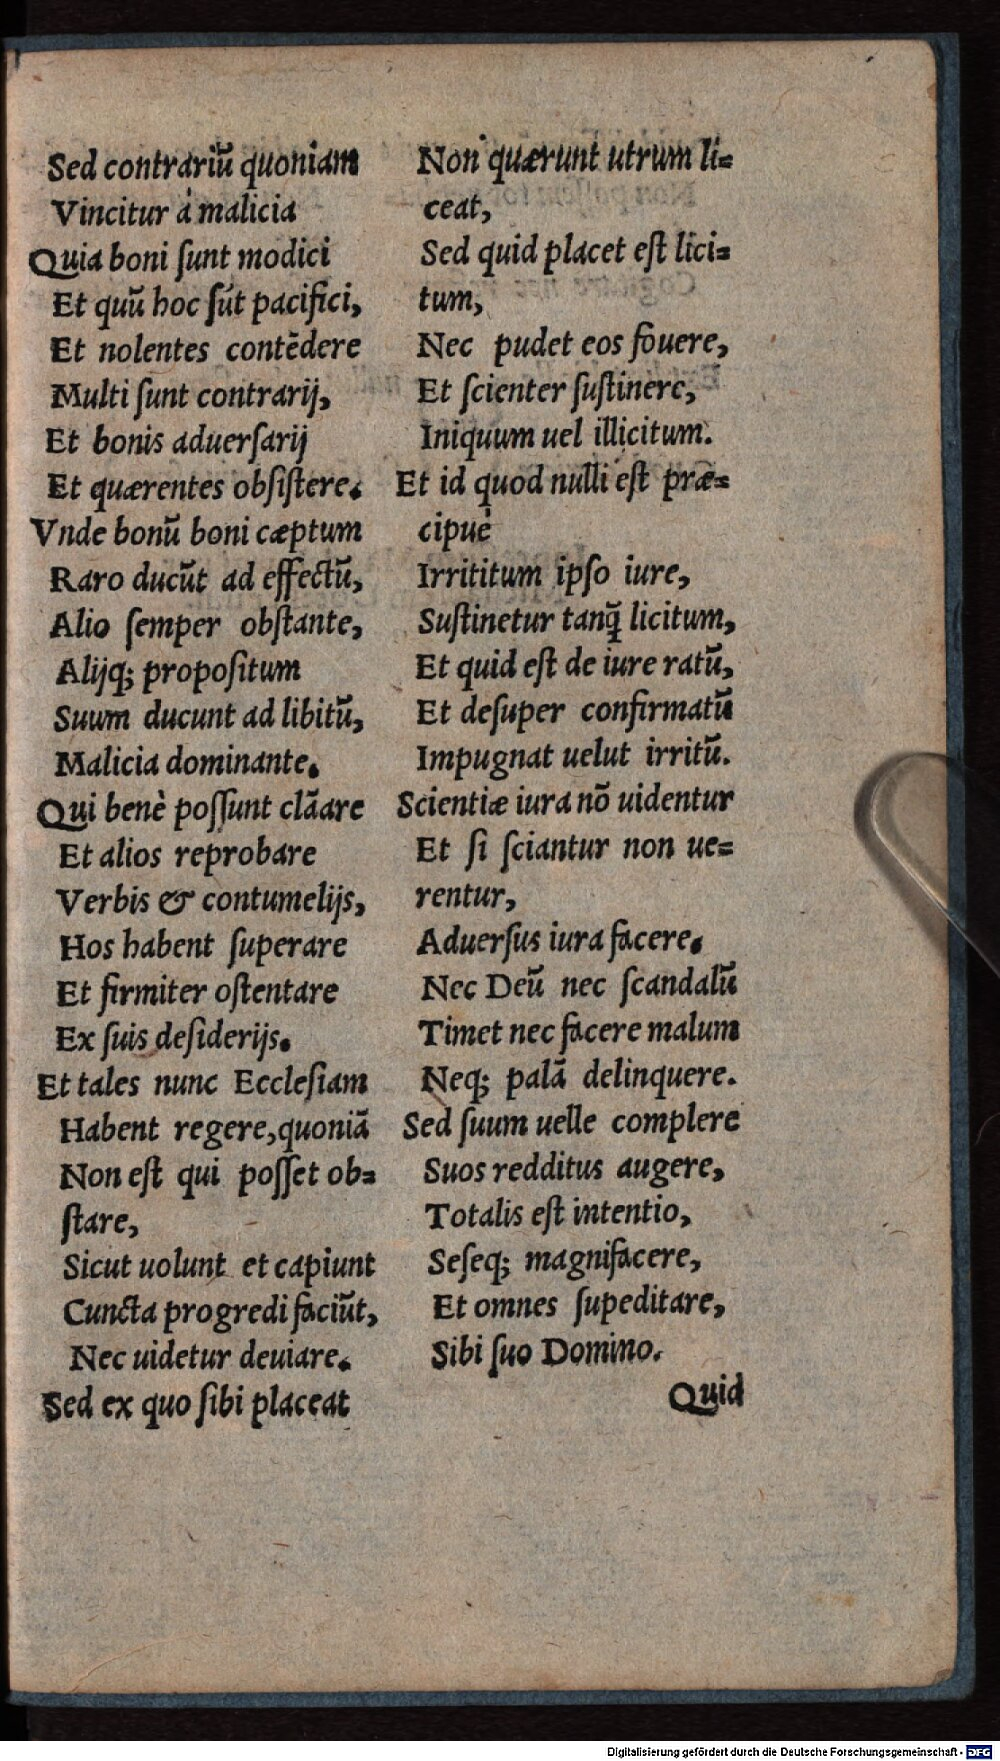 Sed contrariū quoniam
Vincitur à malicia
Quia boni ſunt modici
Et quū hoc ſūt pacifici,
Et nolentes contēdere
Multi ſunt contrarij,
Et bonis aduerſarij
Et quærentes obſiſtere.
Vnde bonū boni cæptum
Raro ducūt ad effectū,
Alio ſemper obſtante,
Alijq; propoſitum
Suum ducunt ad libitū,
Malicia dominante.
Qui benè poſſunt clāare
Et alios reprobare
Verbis & contumelijs,
Hos habent ſuperare
Et firmiter oſtentare
Ex ſuis deſiderijs.
Et tales nunc Eccleſiam
Habent regere, quoniā
Non eſt qui poſſet ob=
ſtare,
Sicut uolunt et capiunt
Cuncta progredi faciūt,
Nec uidetur deuiare.
Sed ex quo ſibi placeat
Non quærunt utrum li=
ceat,
Sed quid placet eſt lici=
tum,
Nec pudet eos fouere,
Et ſcienter ſuſtinere,
Iniquum uel illicitum.
Et id quod nulli eſt præ=
cipuè
Irrititum ipſo iure,
Suſtinetur tanq̃ licitum,
Et quid eſt de iure ratū,
Et deſuper confirmatū
Impugnat uelut irritū.
Scientiæ iura nō uidentur
Et ſi ſciantur non ue=
rentur,
Aduerſus iura facere.
Nec Deū nec ſcandalū
Timet nec facere malum
Neq; palā delinquere.
Sed ſuum uelle complere
Suos redditus augere,
Totalis eſt intentio,
Seſeq; magnifacere,
Et omnes ſupeditare,
Sibi ſuo Domino.
Quid
Digitalisierung gefördert durch die Deutsche Forschungsgemeinschaft - DFG